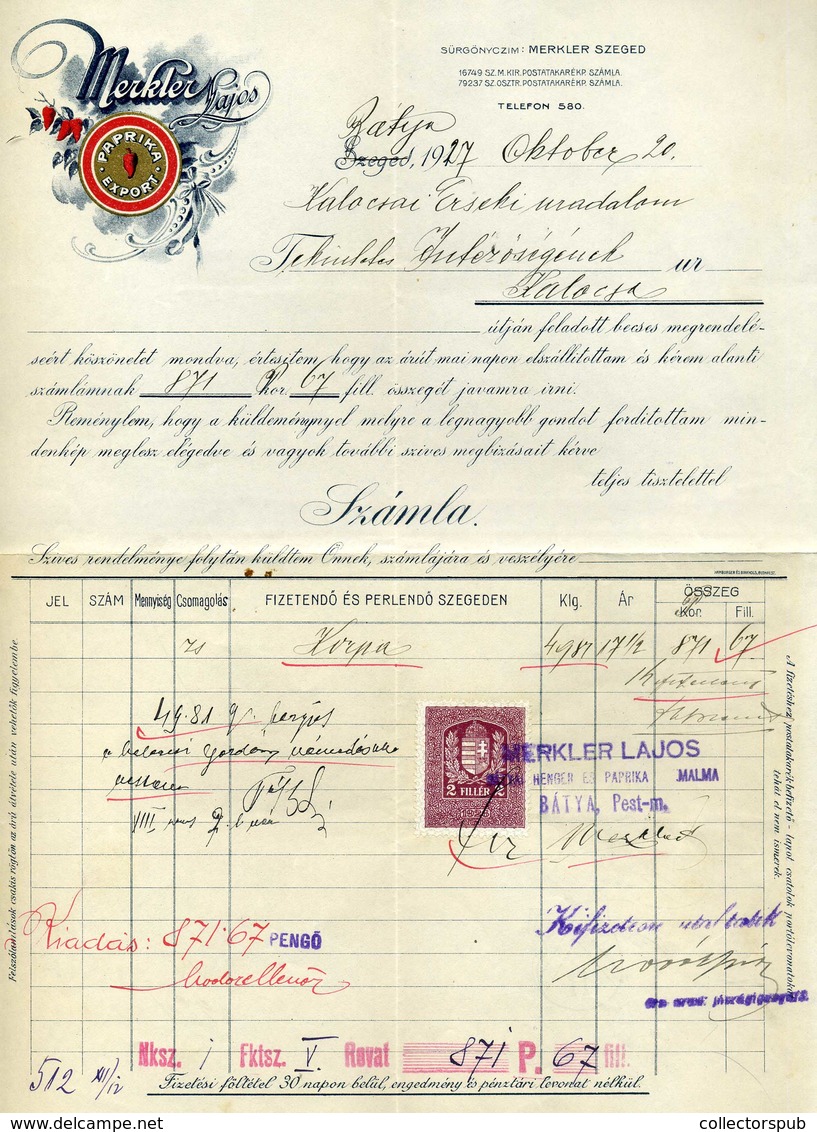 Merkler Lajos
PAPRIKA EXPORT
SÜRGÖNYCZIM: MERKLER SZEGED
16749 SZ. M. KIR. POSTATAKARÉKP. SZÁMLA.
79237 SZ. OSZTR. POSTATAKARÉKP. SZÁMLA.
TELEFON 580.
Bátya
Szeged, 1927 Oktober 20.
Kalocsai Érseki uradalom
Tekintetes Intézőségének ur
Kalocsa
útján feladott becses megrendelé-
seért köszönetet mondva, értesitem, hogy az árút mai napon elszállitottam és kérem alanti
számlámnak 871 P kor. 67 fill. összegét javamra irni.
Reménylem, hogy a küldeménynyel melyre a legnagyobb gondot forditottam min-
denkép meglesz elégedve és vagyok további szives megbizásait kérve
teljes tisztelettel
Számla.
Szives rendelménye folytán küldtem Önnek, számlájára és veszélyére
JEL SZÁM Mennyiség Csomagolás FIZETENDŐ ÉS PERLENDŐ SZEGEDEN Klg. Ár ÖSSZEG
Kor. Fill.
zs Korpa 4981 17 1/2 871 67
49.81 q.
2 FILLÉR 2
MERKLER LAJOS
HENGER ÉS PAPRIKA MALMA
BÁTYA, Pest-m.
Kiadás: 871.67 PENGŐ
Nksz. 1 Fktsz. V. Rovat 871 P. 67 fill.
512 XII/12
Fizetési föltétel 30 napon belül, engedmény és pénztári levonat nélkül.
Felszólamlások csakis rögtön az árú átvétele után vehetők figyelembe.
A fizetéshez postatakarékbefizető-lapot csatolok portólevonatokat
tehát el nem ismerek.
collectorspub